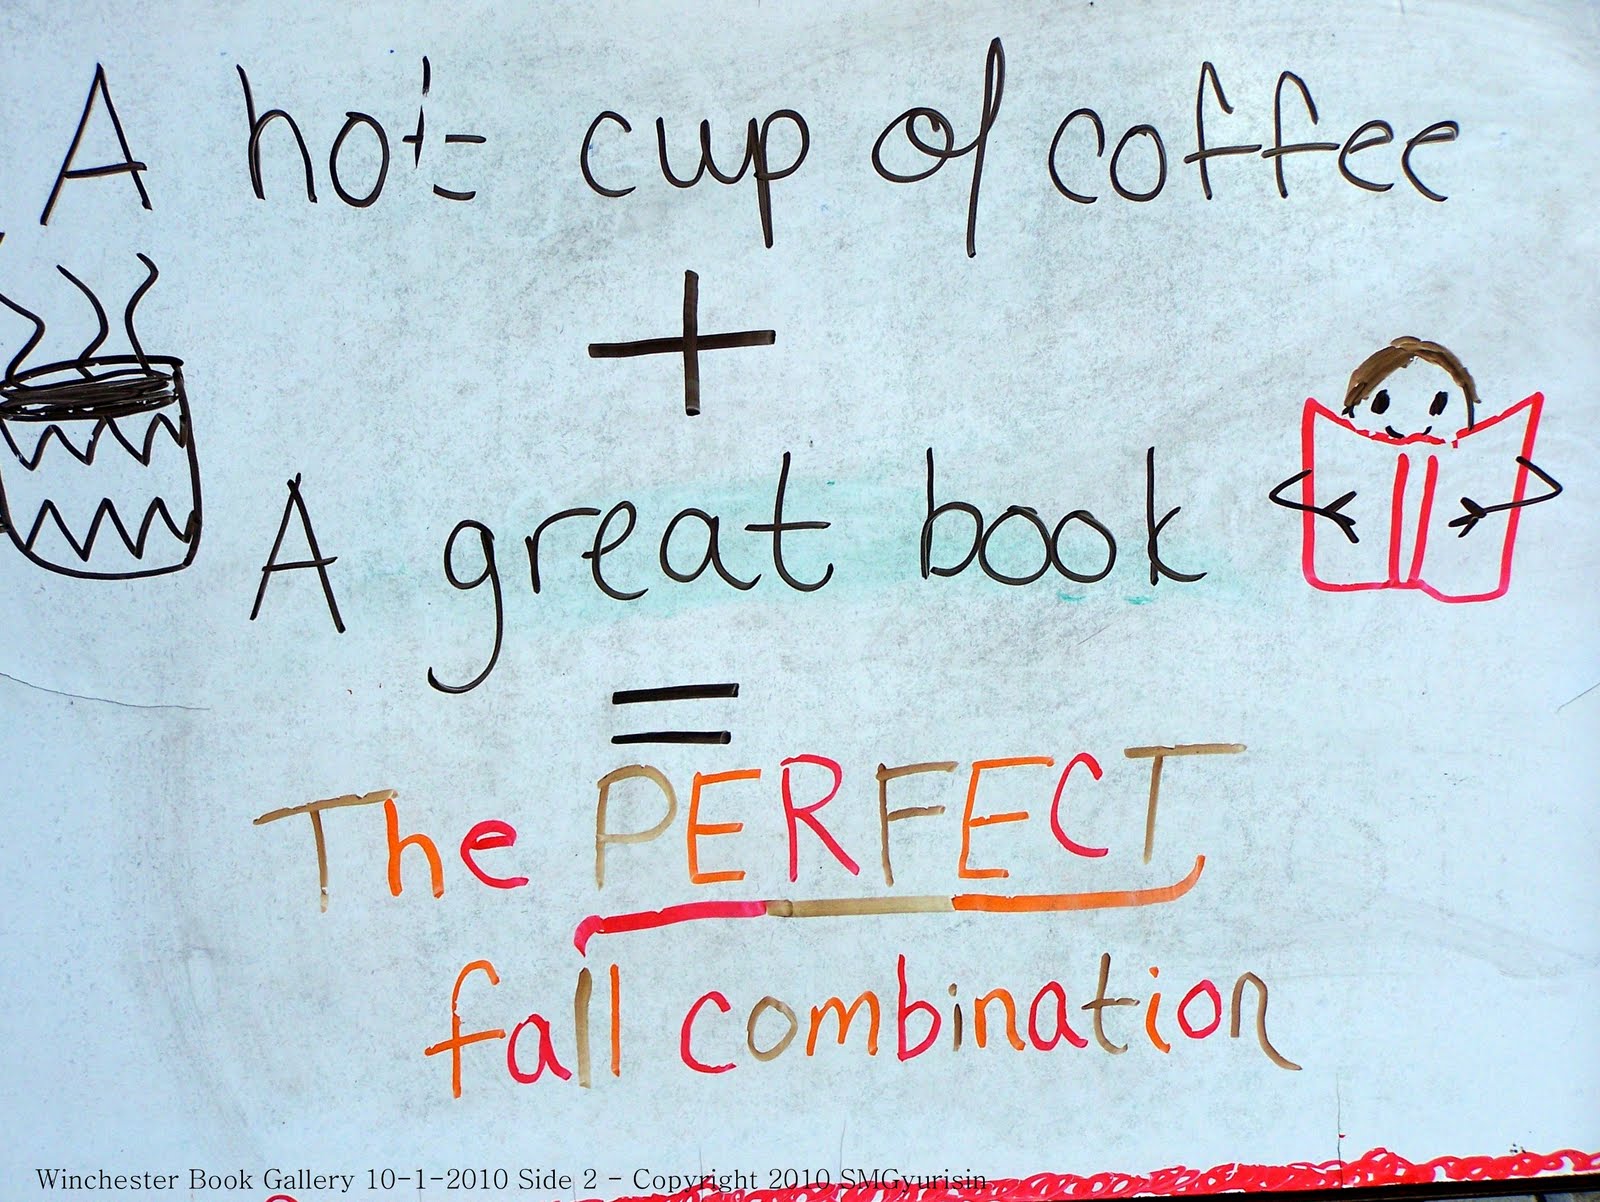 A hot cup of coffee
+
A great book
=
The PERFECT
fall combination
Winchester Book Gallery 10-1-2010 Side 2 - Copyright 2010 SMGyurisin